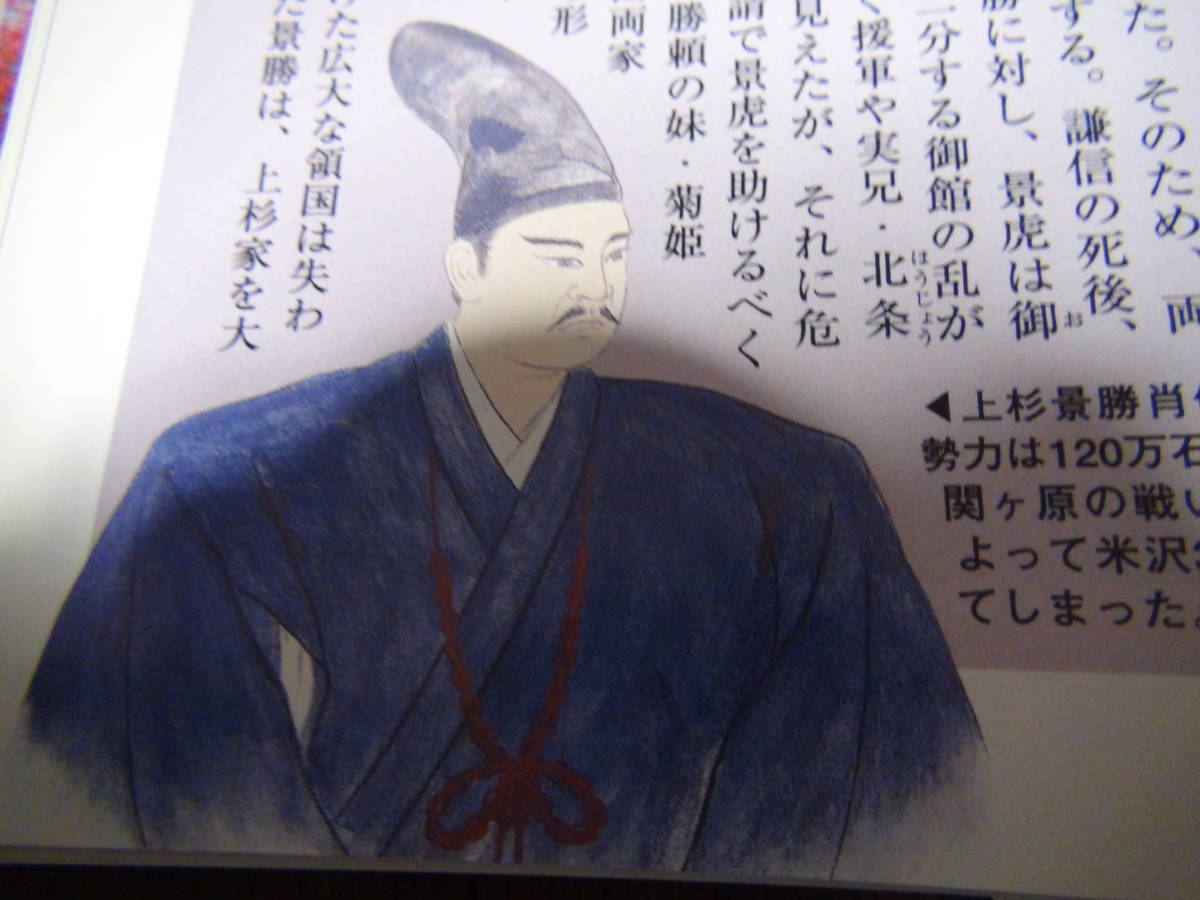 た。そのため、両
する。謙信の死後、
勝に対し、景虎は御
お
二分する御館の乱が
く援軍や実兄・北条
ほうじょう
見えたが、それに危
請で景虎を助けるべく
勝頼の妹・菊姫
両家
形
けた広大な領国は失わ
た景勝は、上杉家を大
◀上杉景勝肖
勢力は120万石
関ヶ原の戦い
よって米沢
てしまった。